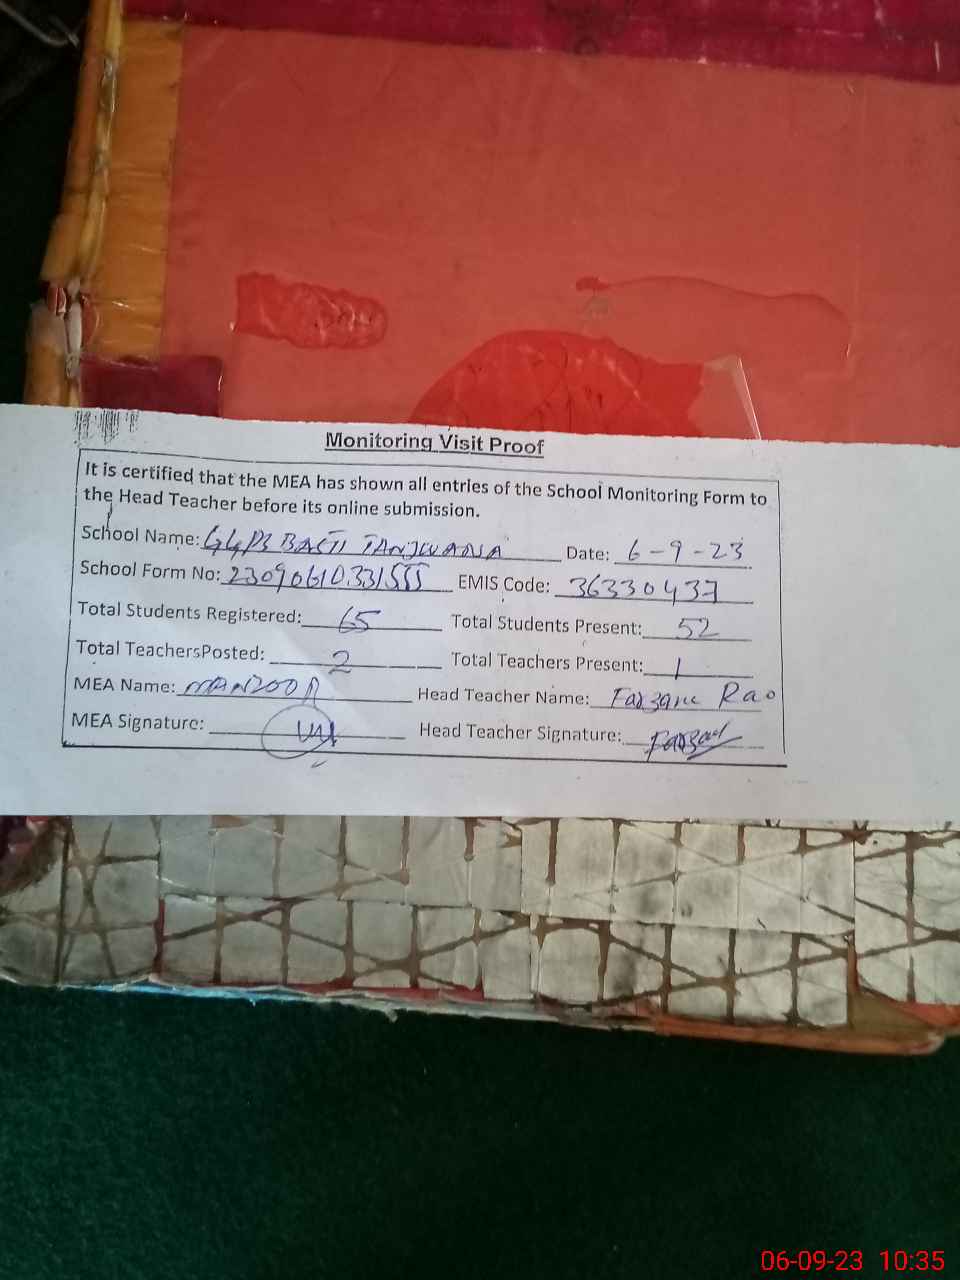 Monitoring Visit Proof
It is certified that the MEA has shown all entries of the School Monitoring Form to
the Head Teacher before its online submission.
School Name: GGPS BASTI TANJWANA Date: 6-9-23
School Form No: 23090610331555 EMIS Code: 36330437
Total Students Registered: 65 Total Students Present: 52
Total TeachersPosted: 2 Total Teachers Present: 1
MEA Name: MANZOOR Head Teacher Name: Farzane Rao
MEA Signature: Head Teacher Signature:
06-09-23 10:35